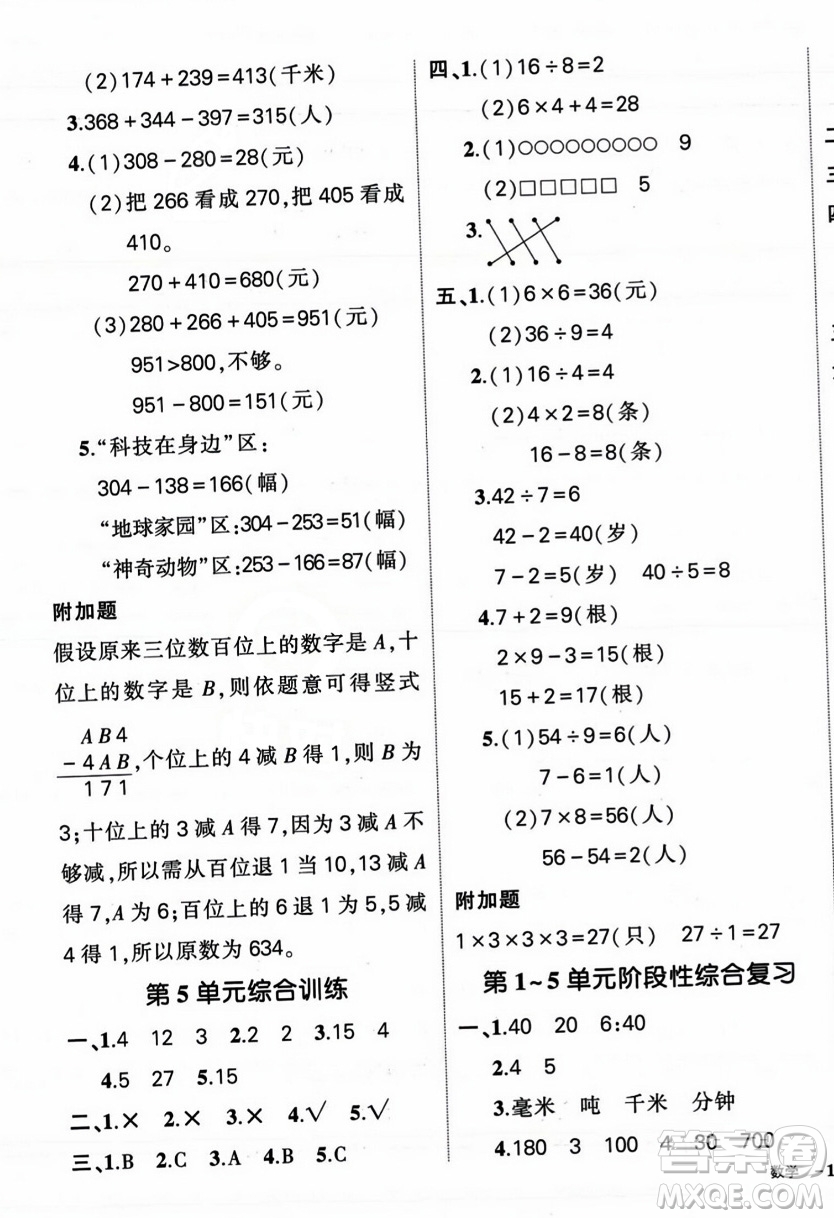 (2)174+239=413(千米)
3.368+344-397=315(人)
4.(1)308-280=28(元)
(2)把 266 看成 270,把 405 看成
410。
270+410=680(元)
(3)280+266+405=951(元)
951>800,不够。
951-800=151(元)
5.“科技在身边”区:
304-138=166(幅)
“地球家园”区:304-253=51(幅)
“神奇动物”区:253-166=87(幅)
附加题
假设原来三位数百位上的数字是 A,十
位上的数字是 B,则依题意可得竖式
A B 4
-4 A B,个位上的 4 减 B 得 1,则 B 为
1 7 1
3;十位上的 3 减 A 得 7,因为 3 减 A 不
够减,所以需从百位退 1 当 10,13 减 A
得 7,A 为 6;百位上的 6 退 1 为 5,5 减
4 得 1,所以原数为 634。
第 5 单元综合训练
一、1.4 12 3 2.2 2 3.15 4
4.5 27 5.15
二、1.× 2.× 3.× 4.√ 5.√
三、1.B 2.C 3.A 4.B 5.C
四、1.(1)16÷8=2
(2)6×4+4=28
2.(1)○○○○○○○○○ 9
(2)□□□□□ 5
3.
五、1.(1)6×6=36(元)
(2)36÷9=4
2.(1)16÷4=4
(2)4×2=8(条)
16-8=8(条)
3.42÷7=6
42-2=40(岁)
7-2=5(岁) 40÷5=8
4.7+2=9(根)
2×9-3=15(根)
15+2=17(根)
5.(1)54÷9=6(人)
7-6=1(人)
(2)7×8=56(人)
56-54=2(人)
附加题
1×3×3×3=27(只) 27÷1=27
第 1~5 单元阶段性综合复习
一、1.40 20 6:40
2.4 5
3.毫米 吨 千米 分钟
4.180 3 100 4 80 700
数学 -1
答案圈
MXQE.COM
二
三
四